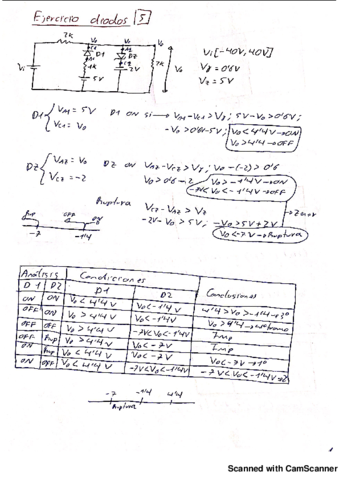 Ejercicio diodos 5
2K
Vo
Vo
Vo
D1
DZ
1K
5V
2V
2K
Vo
Vi
Vi [-40V, 40V]
Vγ = 0'6V
Vz = 5V
D1 { VA1 = 5V
VC1 = Vo
D1 ON si → VA1-VC1 > Vγ; 5V-Vo > 0'6V;
-Vo > 0'6V-5V; Vo < 4'4V → ON
Vo > 4'4V → OFF
DZ { VAZ = Vo
VCZ = -2
DZ ON VAZ-VCZ > Vγ; Vo-(-2) > 0'6
Vo > 0'6-2; Vo > -1'4V → ON
-7V < Vo < -1'4V → OFF
Ruptura
VCZ-VAZ > Vz
-2V-Vo > 5V; -Vo > 5V+2V
Vo < -7V → Ruptura
Zener
Rup OFF ON
-7 -1'4
Análisis Condiciones Conclusiones
D1 DZ D1 D2
ON ON Vo < 4'4V Vo < -1'4V 4'4V > Vo > -1'4V → 3º
OFF ON Vo > 4'4V Vo < -1'4V Vo > 4'4V → 4º tramo
OFF OFF Vo > 4'4V -7V < Vo < -1'4V Imp
OFF Rup Vo > 4'4V Vo < -7V Imp
ON Rup Vo < 4'4V Vo < -7V Vo < -7V → 1º
ON OFF Vo < 4'4V -7V < Vo < -1'4V -7V < Vo < -1'4V → 2º
-7 -1'4 4'4
Ruptura
Scanned with CamScanner